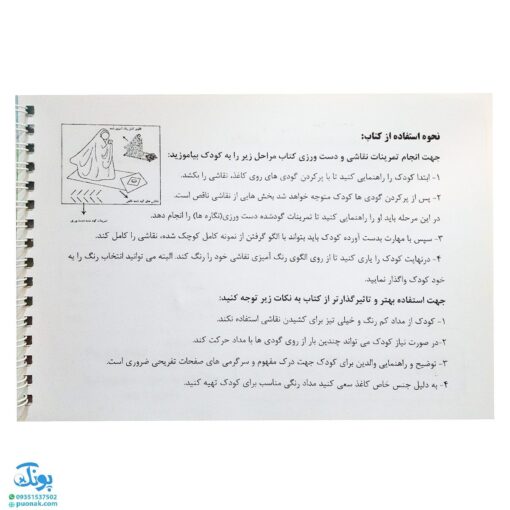 نحوه استفاده از کتاب:
جهت انجام تمرینات نقاشی و دست ورزی کتاب مراحل زیر را به کودک بیاموزید:
۱- ابتدا کودک را راهنمایی کنید تا با پرکردن گودی های روی کاغذ، نقاشی را بکشد.
۲- پس از پرکردن گودی ها کودک متوجه خواهد شد بخش هایی از نقاشی ناقص است.
در این مرحله باید او را راهنمایی کنید تا تمرینات گودشده دست ورزی(نگاره ها) را انجام دهد.
۳- سپس با مهارت بدست آورده کودک باید بتواند با الگو گرفتن از نمونه کامل کوچک شده، نقاشی را کامل کند.
۴- درنهایت کودک را یاری کنید تا از روی الگوی رنگ آمیزی نقاشی خود را رنگ کند. البته می توانید انتخاب رنگ را به
خود کودک واگذار نمایید.
جهت استفاده بهتر و تاثیرگذارتر از کتاب به نکات زیر توجه کنید:
۱- کودک از مداد کم رنگ و خیلی تیز برای کشیدن نقاشی استفاده نکند.
۲- در صورت نیاز کودک می تواند چندین بار از روی گودی ها با مداد حرکت کند.
۳- توضیح و راهنمایی والدین برای کودک جهت درک مفهوم و سرگرمی های صفحات تفریحی ضروری است.
۴- به دلیل جنس خاص کاغذ سعی کنید مداد رنگی مناسب برای کودک تهیه کنید.
پونک
09351537502
puonak.com